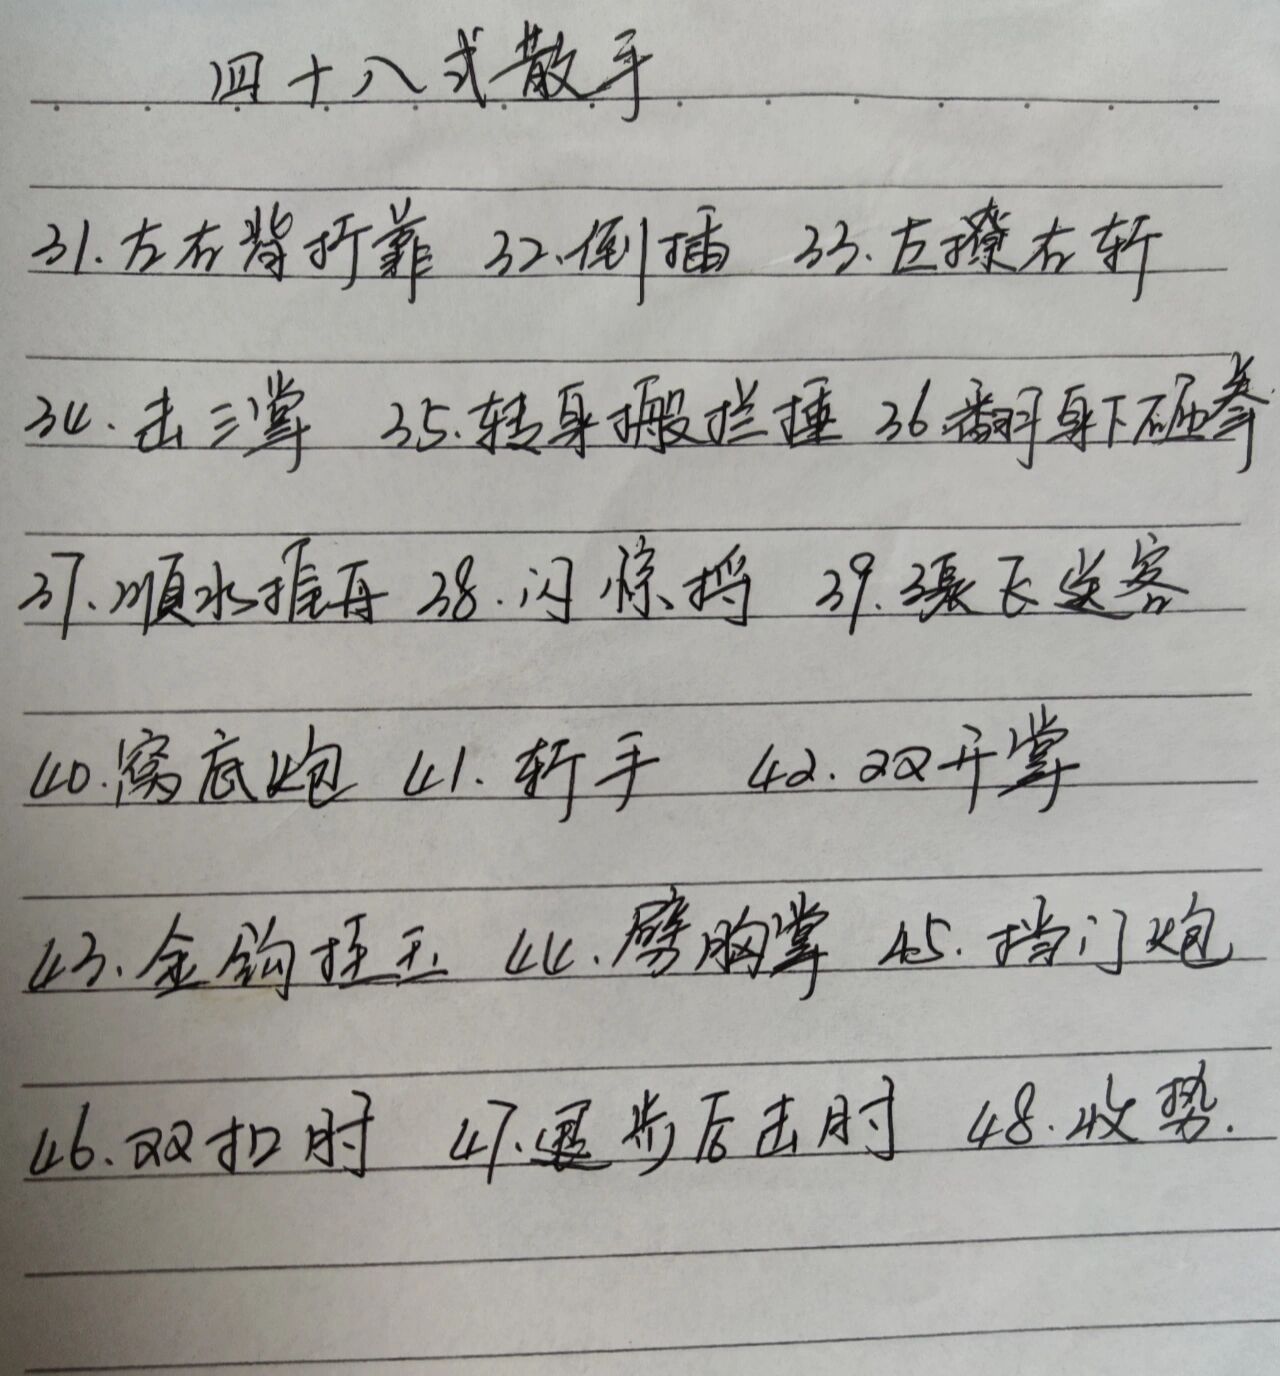 四十八式散手
31.左右背折靠 32.倒插 33.左撩右斩
34.击三掌 35.转身搬拦捶 36.翻身下砸拳
37.顺水推舟 38.闪惊捋 39.張飞送客
40.窝底炮 41.斩手 42.双开掌
43.金钩挂玉 44.劈胸掌 45.挡门炮
46.双扣肘 47.退步后击肘 48.收势.